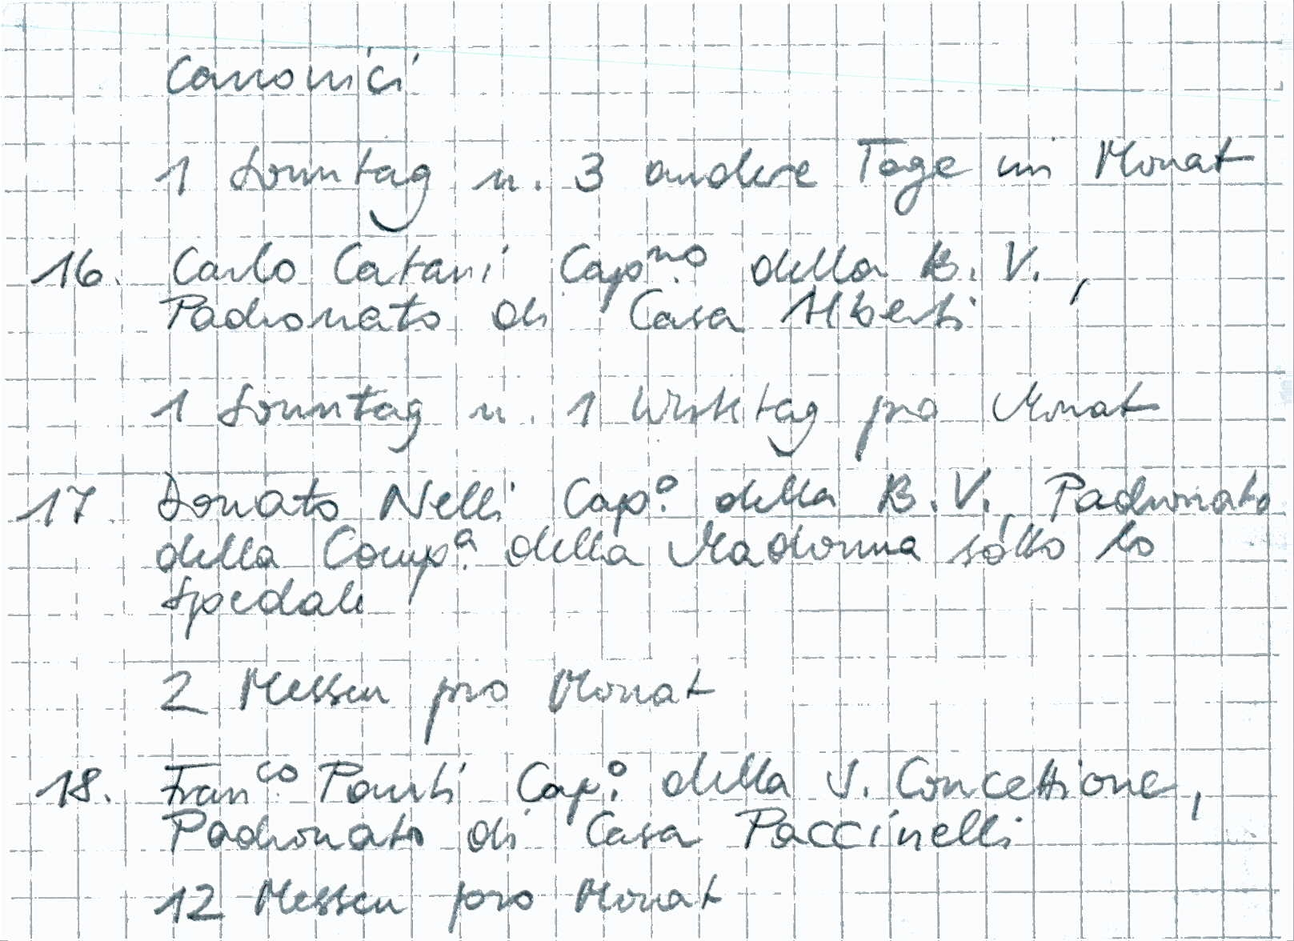 Canonici
1 Sonntag u. 3 andere Tage im Monat
16. Carlo Catani Cap.no della B. V.,
Padronato di Casa Alberti
1 Sonntag u. 1 Werktag pro Monat
17. Donato Nelli Cap.o della B.V., Padronato
della Comp.a della Madonna sotto lo
Spedale
2 Messen pro Monat
18. Franco Cap.o della S. Concettione,
Padronato di Casa Paccinelli
12 Messen pro Monat